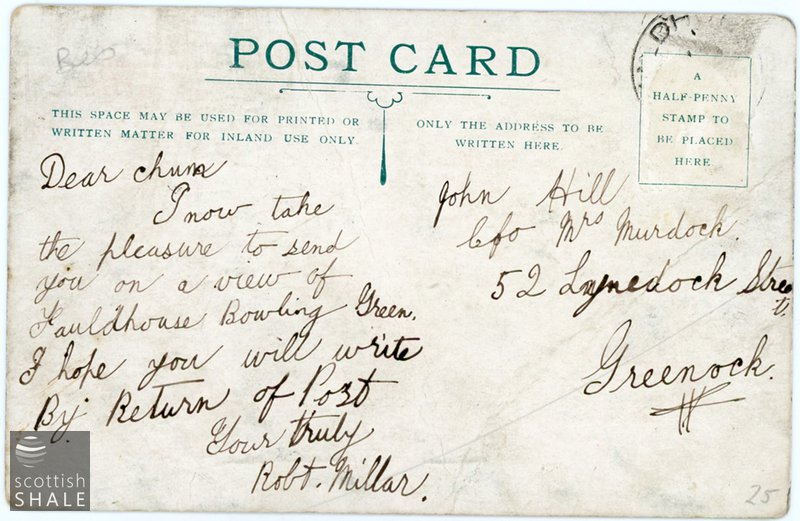 POST CARD
THIS SPACE MAY BE USED FOR PRINTED OR
WRITTEN MATTER FOR INLAND USE ONLY.
ONLY THE ADDRESS TO BE
WRITTEN HERE.
A
HALF-PENNY
STAMP TO
BE PLACED
HERE.
Dear chum
I now take
the pleasure to send
you on a view of
Fauldhouse Bowling Green.
I hope you will write
By Return of Post
Your truly
Robt. Millar.
John Hill
C/o Mrs Murdock.
52 Lynedock Stree
t.
Greenock.
scottish
SHALE
25